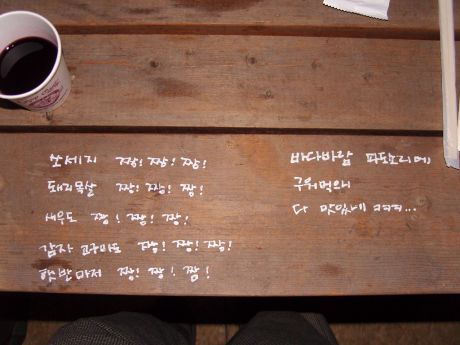 쏘세지 짱! 짱! 짱!
돼지목살 짱! 짱! 짱!
새우도 짱! 짱! 짱!
감자 고구마도 짱! 짱! 짱!
햇반마저 짱! 짱! 짬!
바다바람 파도소리에
구워먹으니
다 맛있네 ㅋㅋㅋ...